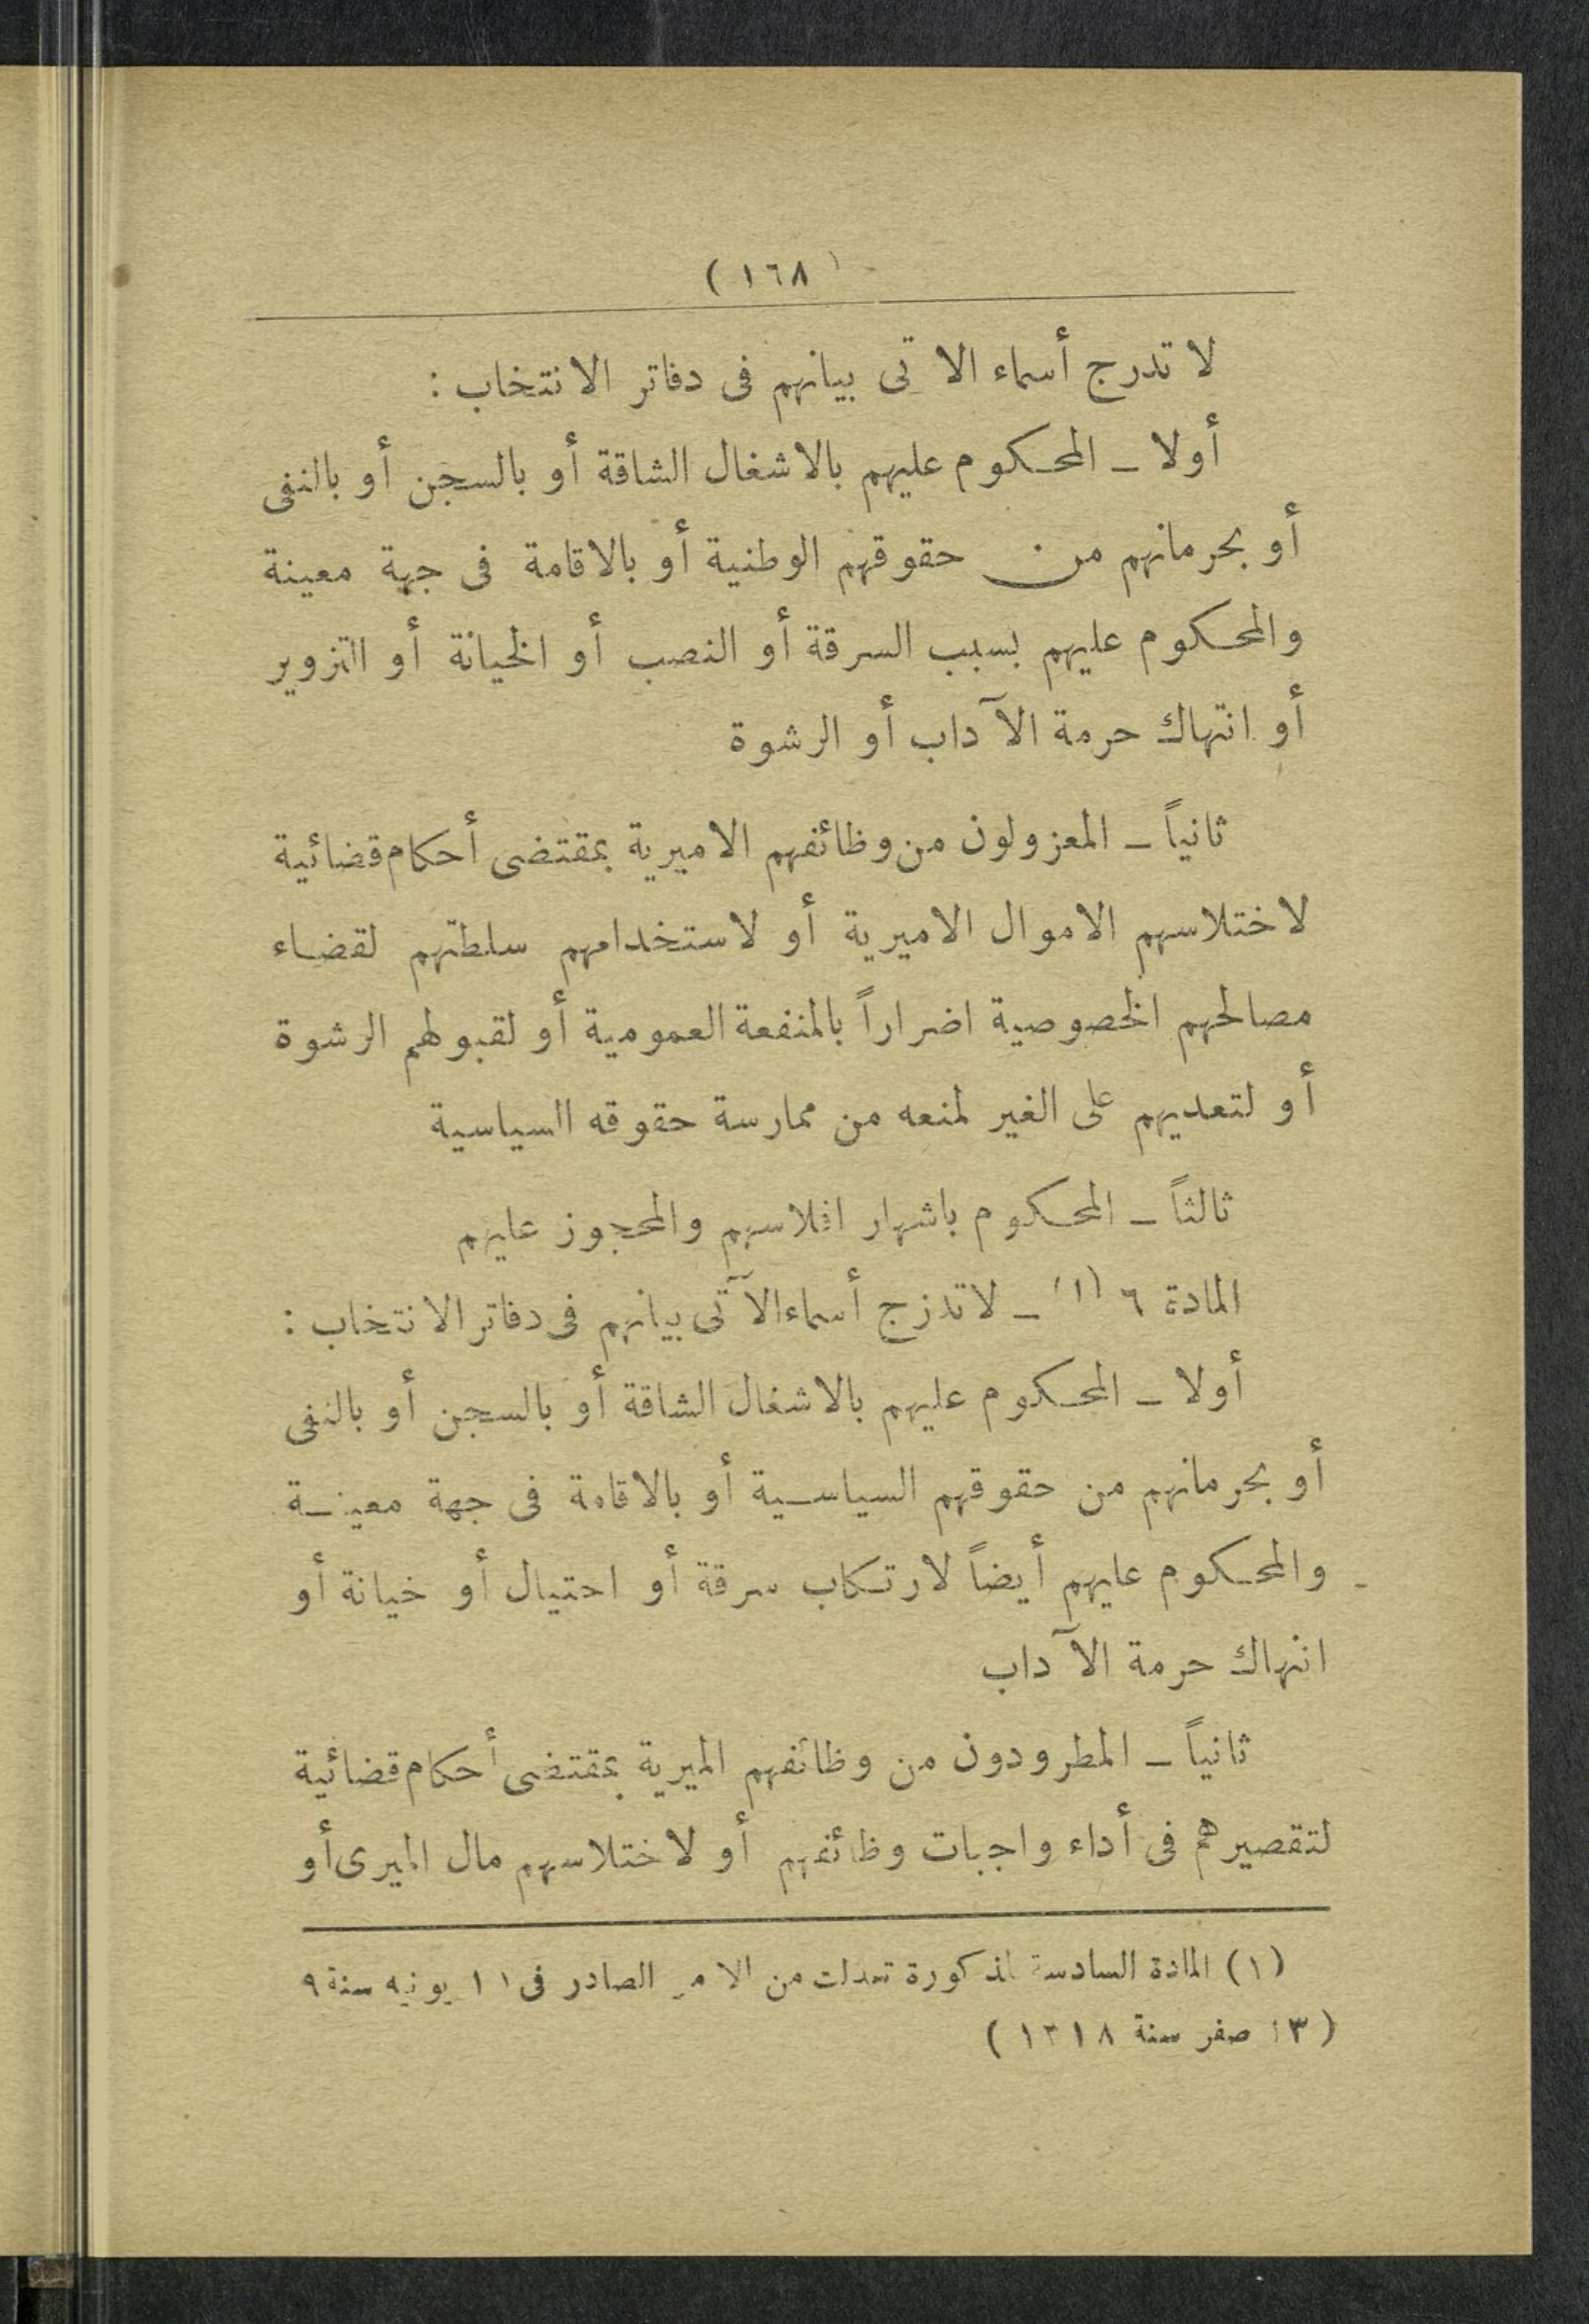 ( ١٦٨ )
لا تدرج أسماء الا تى بيانهم فى دفاتر الانتخاب :
أولا ــ المحكوم عليهم بالاشغال الشاقة أو بالسجن أو بالنفى
أو بحرمانهم من حقوقهم الوطنية أو بالاقامة فى جهة معينة
والمحكوم عليهم بسبب السرقة أو النصب أو الخيانة أو التزوير
أو انتهاك حرمة الآداب أو الرشوة
ثانياً ــ المعزولون من وظائفهم الاميرية بمقتضى أحكام قضائية
لاختلاسهم الاموال الاميرية أو لاستخدامهم سلطتهم لقضاء
مصالحهم الخصوصية اضراراً بالمنفعة العمومية أو لقبولهم الرشوة
أو لتعديهم على الغير لمنعه من ممارسة حقوقه السياسية
ثالثاً ــ المحكوم باشهار افلاسهم والمحجوز عليهم
المادة ٦ (١) ــ لا تدزج أسماء الآتى بيانهم فى دفاتر الانتخاب :
أولا ــ المحكوم عليهم بالاشغال الشاقة أو بالسجن أو بالنفى
أو بحرمانهم من حقوقهم السياسية أو بالاقامة فى جهة معينة
والمحكوم عليهم أيضاً لارتكاب سرقة أو احتيال أو خيانة أو
انتهاك حرمة الآداب
ثانياً ــ المطرودون من وظائفهم الميرية بمقتضى أحكام قضائية
لتقصيرهم فى أداء واجبات وظائفهم أو لاختلاسهم مال الميرى أو
(١) المادة السادسة المذكورة تعدلت من الامر الصادر فى ١١ يونيه سنة ٩
صفر سنة ١٣١٨ )